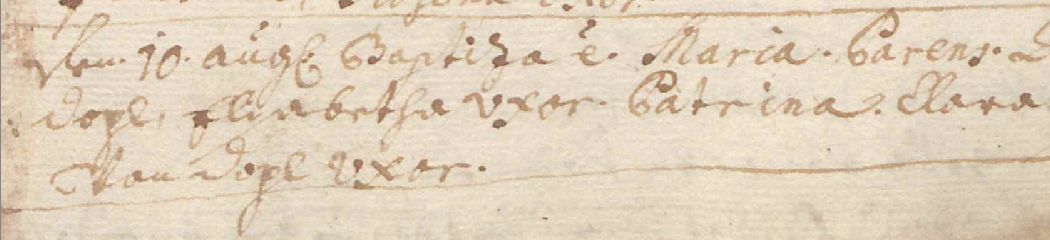 Den. 10. augs. Baptiza ẽ. Maria. Parens.
dopl, Elisabetha vxor. Patrina. Clara
dopl vxor.